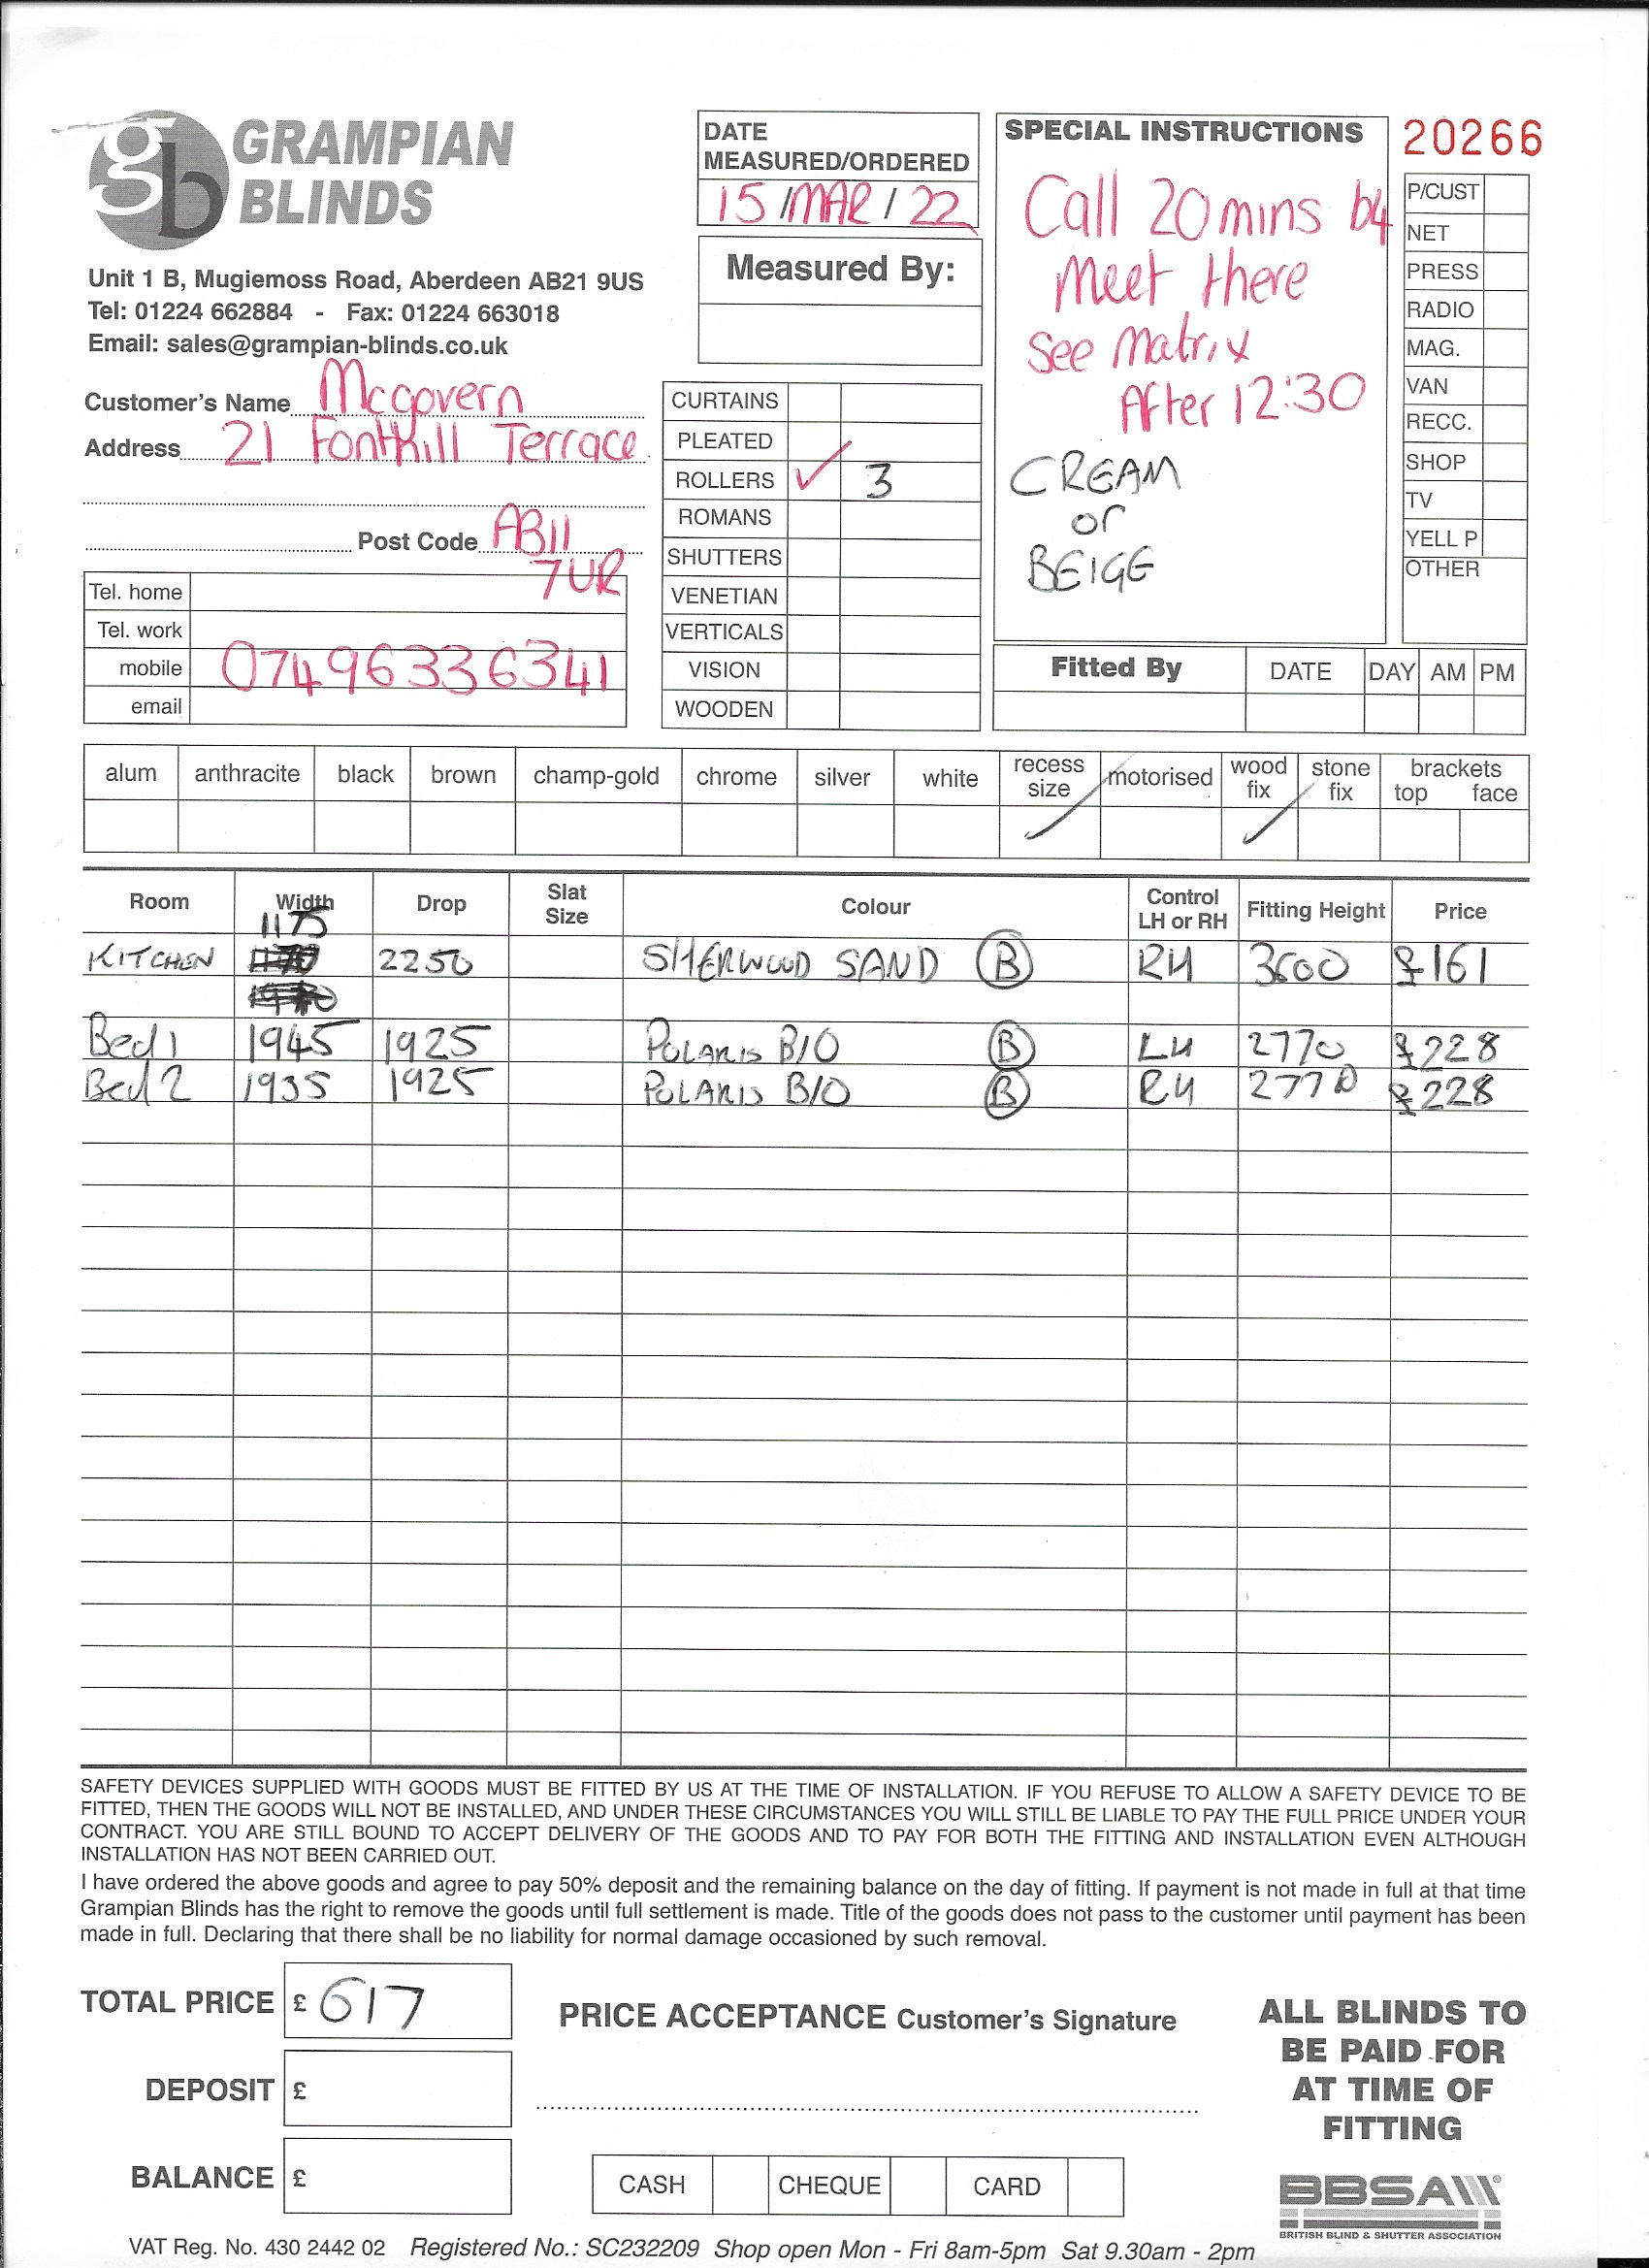 gb GRAMPIAN
BLINDS
Unit 1 B, Mugiemoss Road, Aberdeen AB21 9US
Tel: 01224 662884 - Fax: 01224 663018
Email: sales@grampian-blinds.co.uk
Customer's Name Mcgovern
Address 21 Fonthill Terrace
Post Code AB11
7UR
Tel. home
Tel. work
mobile 07496336341
email
DATE
MEASURED/ORDERED
15/MAR/22
Measured By:
CURTAINS
PLEATED
ROLLERS ✓ 3
ROMANS
SHUTTERS
VENETIAN
VERTICALS
VISION
WOODEN
SPECIAL INSTRUCTIONS
Call 20mins b4
Meet there
See Matrix
After 12:30
CREAM
or
BEIGE
20266
P/CUST
NET
PRESS
RADIO
MAG.
VAN
RECC.
SHOP
TV
YELL P
OTHER
Fitted By DATE DAY AM PM
alum anthracite black brown champ-gold chrome silver white recess size ✓ motorised wood fix ✓ stone fix brackets top face
Room Width Drop Slat Size Colour Control LH or RH Fitting Height Price
1175
KITCHEN 2250 SHERWOOD SAND B RH 3600 £161
Bed 1 1945 1925 POLARIS B/O B LH 2770 £228
Bed 2 1935 1925 POLARIS B/O B RH 2770 £228
SAFETY DEVICES SUPPLIED WITH GOODS MUST BE FITTED BY US AT THE TIME OF INSTALLATION. IF YOU REFUSE TO ALLOW A SAFETY DEVICE TO BE
FITTED, THEN THE GOODS WILL NOT BE INSTALLED, AND UNDER THESE CIRCUMSTANCES YOU WILL STILL BE LIABLE TO PAY THE FULL PRICE UNDER YOUR
CONTRACT. YOU ARE STILL BOUND TO ACCEPT DELIVERY OF THE GOODS AND TO PAY FOR BOTH THE FITTING AND INSTALLATION EVEN ALTHOUGH
INSTALLATION HAS NOT BEEN CARRIED OUT.
I have ordered the above goods and agree to pay 50% deposit and the remaining balance on the day of fitting. If payment is not made in full at that time
Grampian Blinds has the right to remove the goods until full settlement is made. Title of the goods does not pass to the customer until payment has been
made in full. Declaring that there shall be no liability for normal damage occasioned by such removal.
TOTAL PRICE £ 617
DEPOSIT £
BALANCE £
PRICE ACCEPTANCE Customer's Signature
CASH CHEQUE CARD
ALL BLINDS TO
BE PAID FOR
AT TIME OF
FITTING
BBSA
BRITISH BLIND & SHUTTER ASSOCIATION
VAT Reg. No. 430 2442 02 Registered No.: SC232209 Shop open Mon - Fri 8am-5pm Sat 9.30am - 2pm